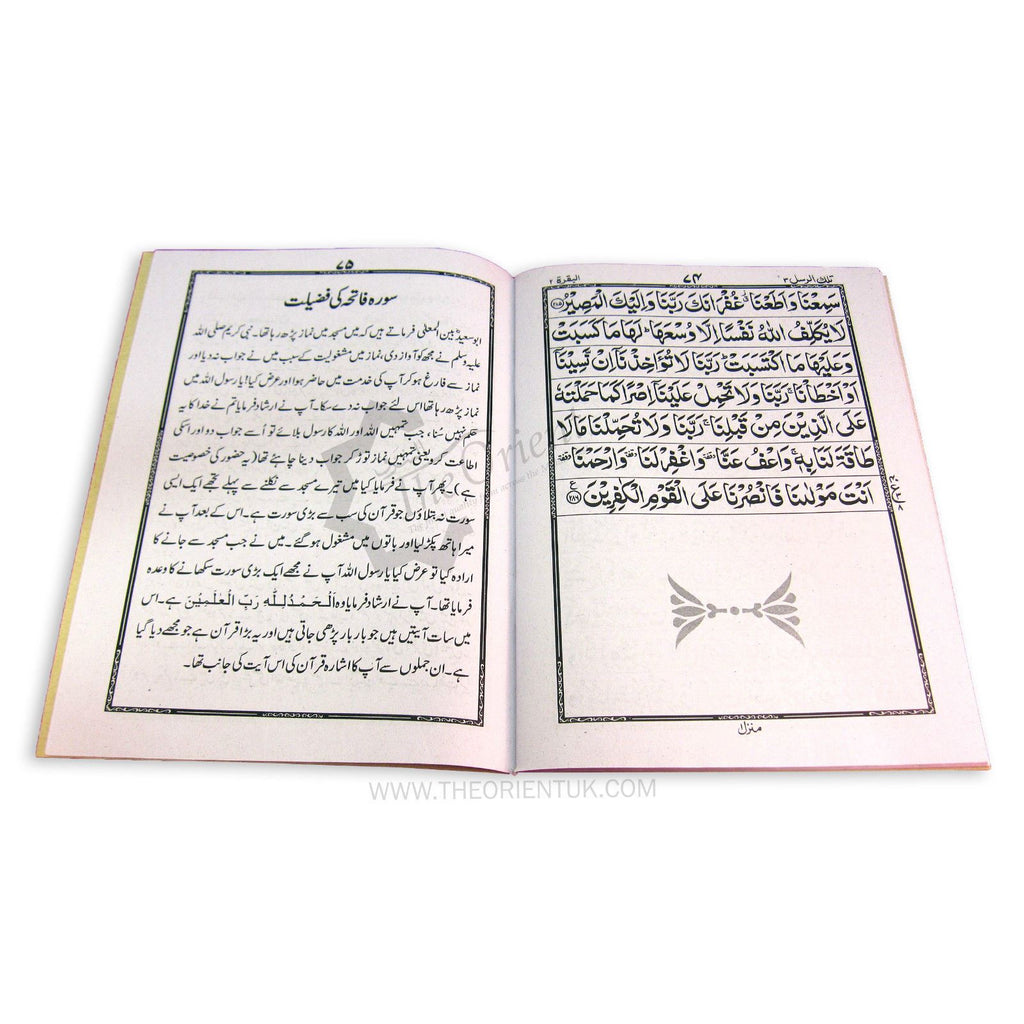 تلك الرسل ٣
٧٤
البقرة ٢
سَمِعْنَا وَاَطَعْنَا غُفْرَانَكَ رَبَّنَا وَاِلَيْكَ الْمَصِيْرُ ﴿٢٨٥﴾
لَا يُكَلِّفُ اللّٰهُ نَفْسًا اِلَّا وُسْعَهَا ؕ لَهَا مَا كَسَبَتْ
وَعَلَيْهَا مَا اكْتَسَبَتْ ؕ رَبَّنَا لَا تُؤَاخِذْنَاۤ اِنْ نَّسِيْنَاۤ
اَوْ اَخْطَاْنَا ۚ رَبَّنَا وَلَا تَحْمِلْ عَلَيْنَاۤ اِصْرًا كَمَا حَمَلْتَهٗ
عَلَى الَّذِيْنَ مِنْ قَبْلِنَا ۚ رَبَّنَا وَلَا تُحَمِّلْنَا مَا لَا
طَاقَةَ لَنَا بِهٖ ۚ وَاعْفُ عَنَّا وقفة وَاغْفِرْ لَنَا وقفة وَارْحَمْنَا وقفة
اَنْتَ مَوْلٰىنَا فَانْصُرْنَا عَلَى الْقَوْمِ الْكٰفِرِيْنَ ﴿٢٨٦﴾
منزل
٧٥
سورہ فاتحہ کی فضیلت
ابوسعید بن المعلیٰ فرماتے ہیں کہ میں مسجد میں نماز پڑھ رہا تھا۔ نبی کریم صلی اللہ
علیہ وسلم نے مجھ کو آواز دی، نماز میں مشغولیت کے سبب میں نے جواب نہ دیا اور
نماز سے فارغ ہو کر آپ کی خدمت میں حاضر ہوا اور عرض کیا! یا رسول اللہ میں
نماز پڑھ رہا تھا اس لئے جواب نہ دے سکا۔ آپ نے ارشاد فرمایا تم نے خدا کا یہ
حکم نہیں سُنا، جب تمہیں اللہ اور اللہ کا رسول بلائے تو اُسے جواب دو اور اسکی
اطاعت کرو یعنی تمہیں نماز توڑ کر جواب دینا چاہئے تھا (یہ حضور کی خصوصیت
ہے)۔ پھر آپ نے فرمایا کیا میں تیرے مسجد سے نکلنے سے پہلے تجھے ایک ایسی
سورت نہ بتلاؤں جو قرآن کی سب سے بڑی سورت ہے۔ اس کے بعد آپ نے
میرا ہاتھ پکڑ لیا اور باتوں میں مشغول ہو گئے۔ میں نے جب مسجد سے جانے کا
ارادہ کیا تو عرض کیا یا رسول اللہ آپ نے مجھے ایک بڑی سورت سکھانے کا وعدہ
فرمایا تھا۔ آپ نے ارشاد فرمایا وہ اَلْحَمْدُ لِلّٰهِ رَبِّ الْعٰلَمِيْنَ ہے۔ اس
میں سات آیتیں ہیں جو بار بار پڑھی جاتی ہیں اور یہ بڑا قرآن ہے جو مجھے دیا گیا
ہے۔ ان جملوں سے آپ کا اشارہ قرآن کی اس آیت کی جانب تھا۔
The Orient
WWW.THEORIENTUK.COM